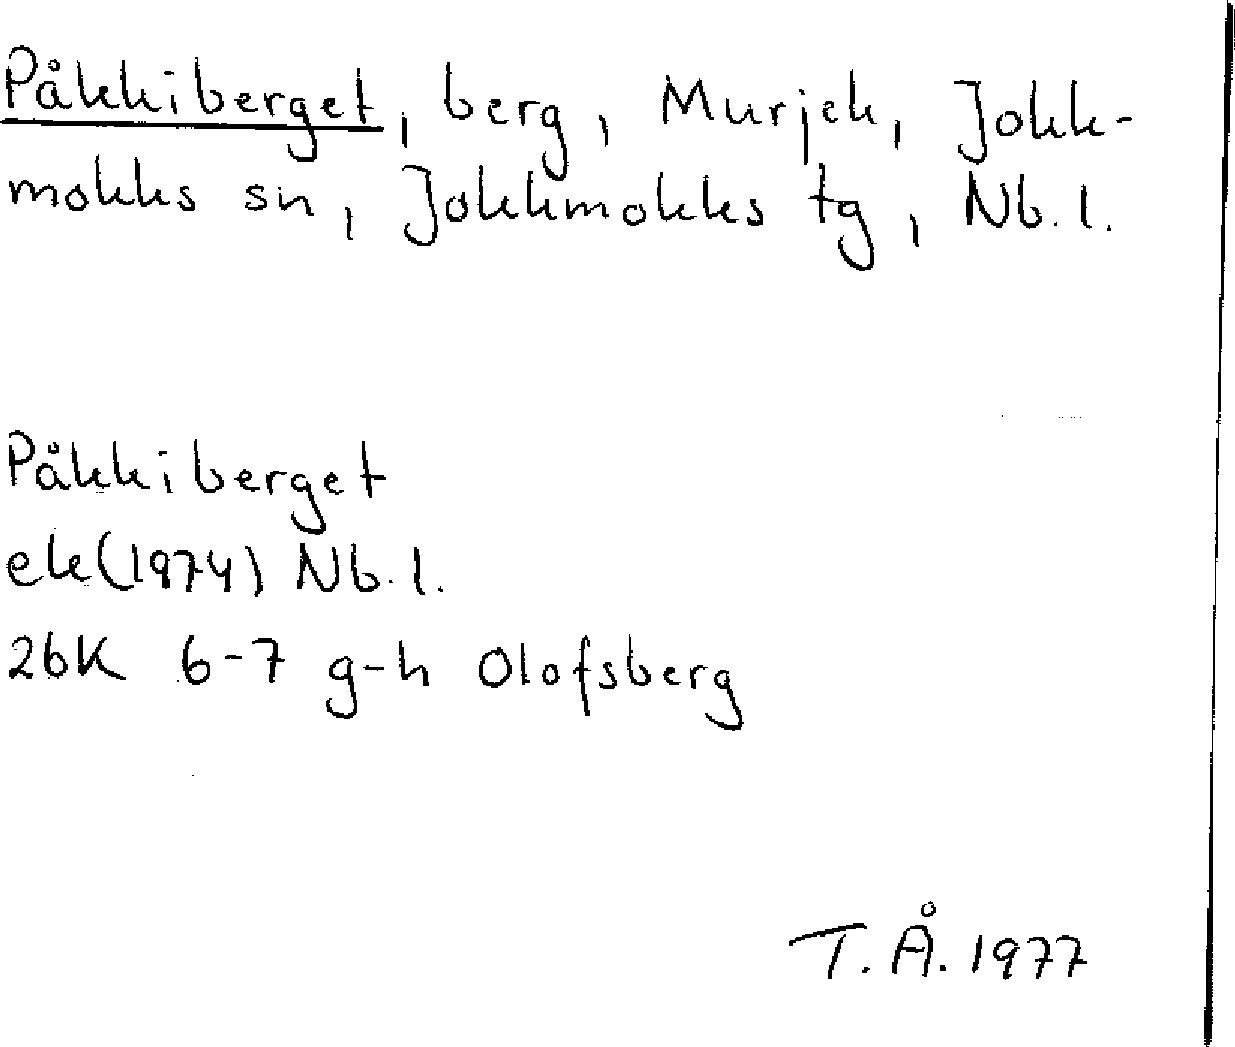 Påkkiberget, berg, Murjek, Jokk-
mokks sn, Jokkmokks tg, Nb.l.
Påkkiberget
ek(1974) Nb.l.
26K 6-7 g-h Olofsberg
T.Å.1977